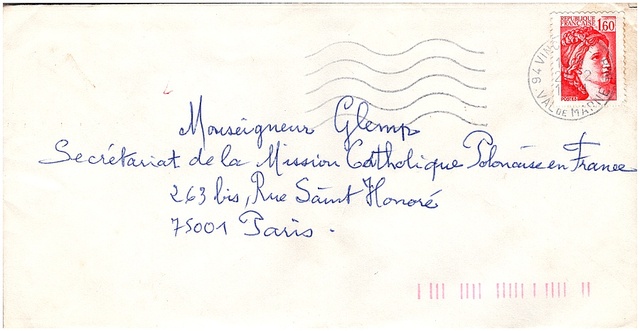 REPUBLIQUE FRANÇAISE 1,60
POSTES
94 VIN
VAL DE MARNE
Monseigneur Glemp
Secrétariat de la Mission Catholique Polonaise en France
263 bis, Rue Saint Honoré
75001 Paris.